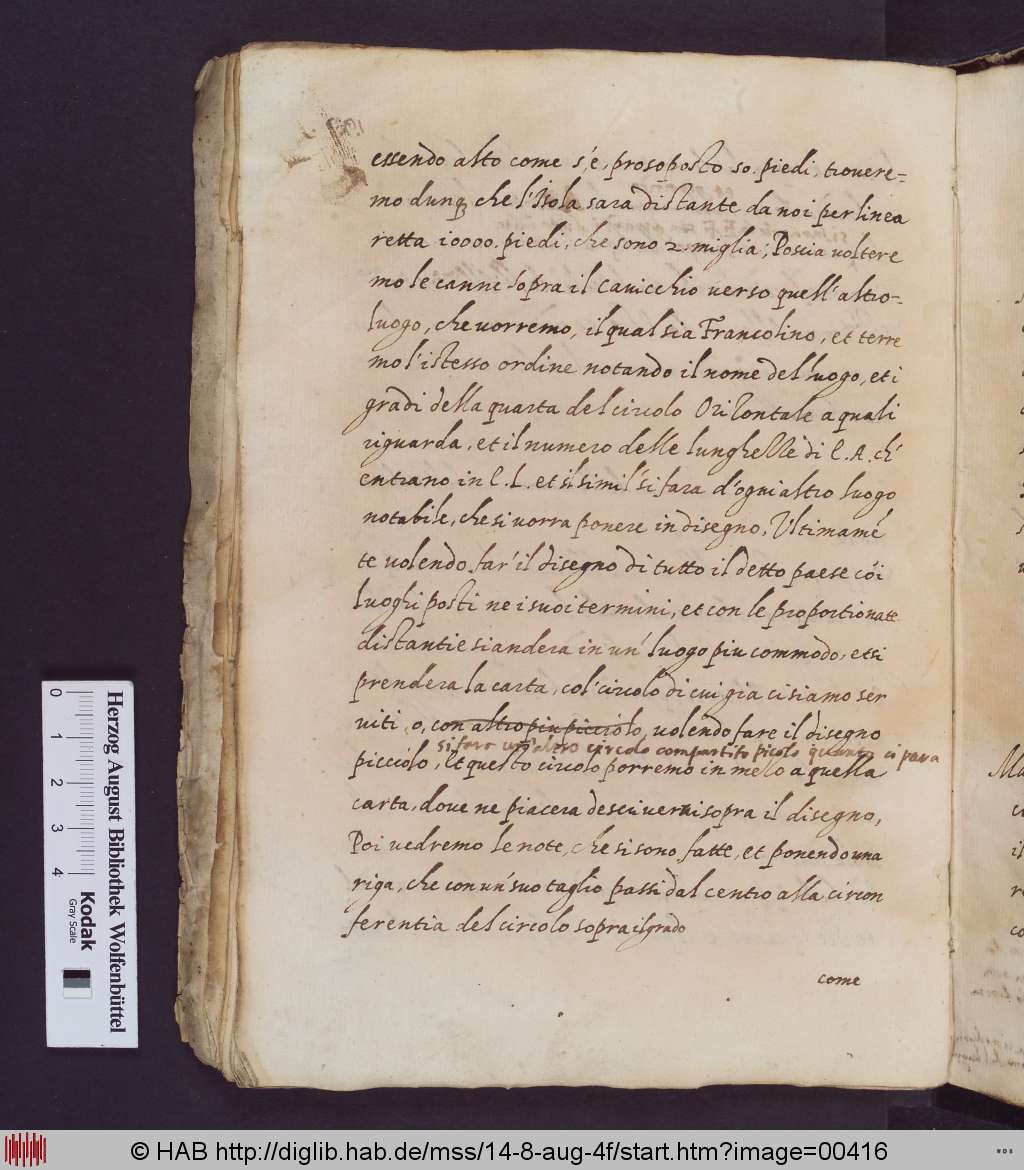 essendo alto come s'è prosoposto 50. piedi, trovere=
mo dunq che l'Isola sara distante da noi per linea
retta 10000. piedi, che sono 2. miglia; Poscia voltere
mo le canne sopra il cavicchio verso quell'altro-
luogo, che vorremo, il qual sia Francolino, et terre
mo l'istesso ordine notando il nome del luogo, et i
gradi della quarta del circolo Orizontale a quali
riguarda, et il numero delle lunghezze di C.A. ch'
entrano in C.L. et il simil' si fara d'ogni altro luogo
notabile, che si vorra ponere in disegno, Ultimamé
te volendo far' il disegno di tutto il detto paese cói
luoghi posti ne i suoi termini, et con le proportionate
distantie si andera in un' luogo piu commodo, et si
prendera la carta, col' circolo di cui gia ci siamo ser
viti, o, con altro piu picciolo, volendo fare il disegno
si fara un' altro circolo compartito picolo quanto ci para
picciolo, Et questo circolo porremo in mezo a quella
carta, dove ne piacera descriver sopra il disegno,
Poi vedremo le note, che si sono fatte, et ponendo una
riga, che con un' suo taglio passi dal centro alla circon
ferentia del circolo sopra il grado
come
Herzog August Bibliothek Wolfenbüttel
Kodak
Gray Scale
0 1 2 3 4
© HAB http://diglib.hab.de/mss/14-8-aug-4f/start.htm?image=00416